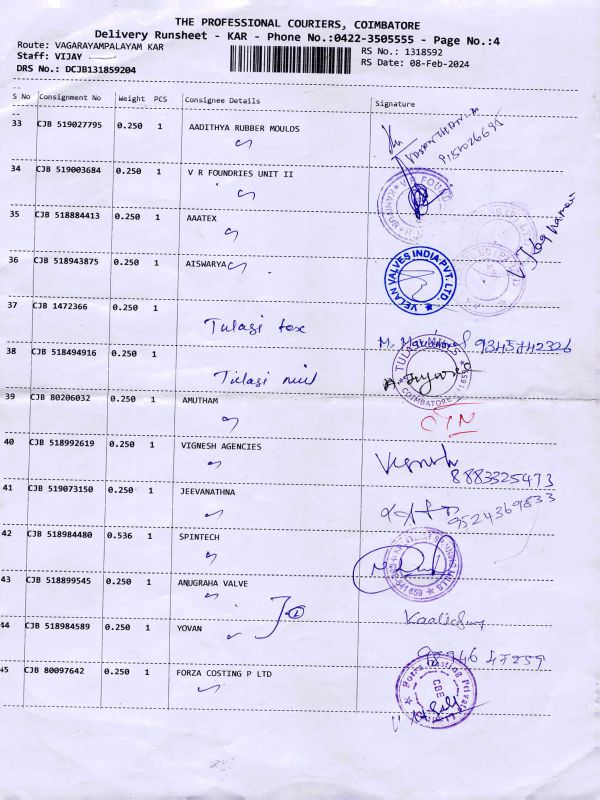 THE PROFESSIONAL COURIERS, COIMBATORE
Delivery Runsheet - KAR - Phone No.:0422-3505555 - Page No.:4
Route: VAGARAYAMPALAYAM KAR
RS No.: 1318592
Staff: VIJAY
RS Date: 08-Feb-2024
DRS No.: DCJB131859204
S No Consignment No Weight PCS Consignee Details Signature
33 CJB 519027795 0.250 1 AADITHYA RUBBER MOULDS
34 CJB 519003684 0.250 1 V R FOUNDRIES UNIT II
35 CJB 518884413 0.250 1 AAATEX
36 CJB 518943875 0.250 1 AISWARYA
VELAN VALVES INDIA PVT. LTD.
37 CJB 1472366 0.250 1 Tulasi tex
9345742326
38 CJB 518494916 0.250 1 Tulasi mill
COIMBATORE
39 CJB 80206032 0.250 1 AMUTHAM
40 CJB 518992619 0.250 1 VIGNESH AGENCIES Vignesh
8883325473
41 CJB 519073150 0.250 1 JEEVANATHNA
9524369833
42 CJB 518984480 0.536 1 SPINTECH
43 CJB 518899545 0.250 1 ANUGRAHA VALVE
44 CJB 518984589 0.250 1 YOVAN
45 CJB 80097642 0.250 1 FORZA COSTING P LTD
CBE